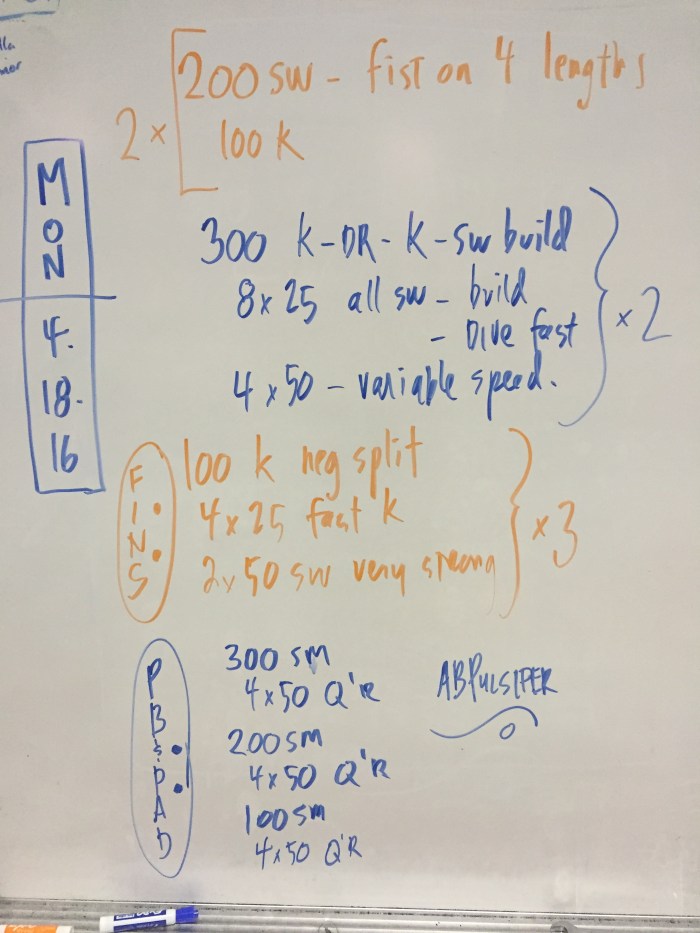 2 x
200 sw - fist on 4 lengths
100 k
MON
4.
18.
16
300 k-DR-k-sw build
8x25 all sw - build
- Dive fast
4 x 50 - variable speed.
x 2
FINS
100 k neg split
4 x 25 fast k
2x 50 sw very strong
x 3
PB&PAD
300 sm
4x50 Q'R
200 sm
4x50 Q'R
100 sm
4x50 Q'R
ABPULSIFER